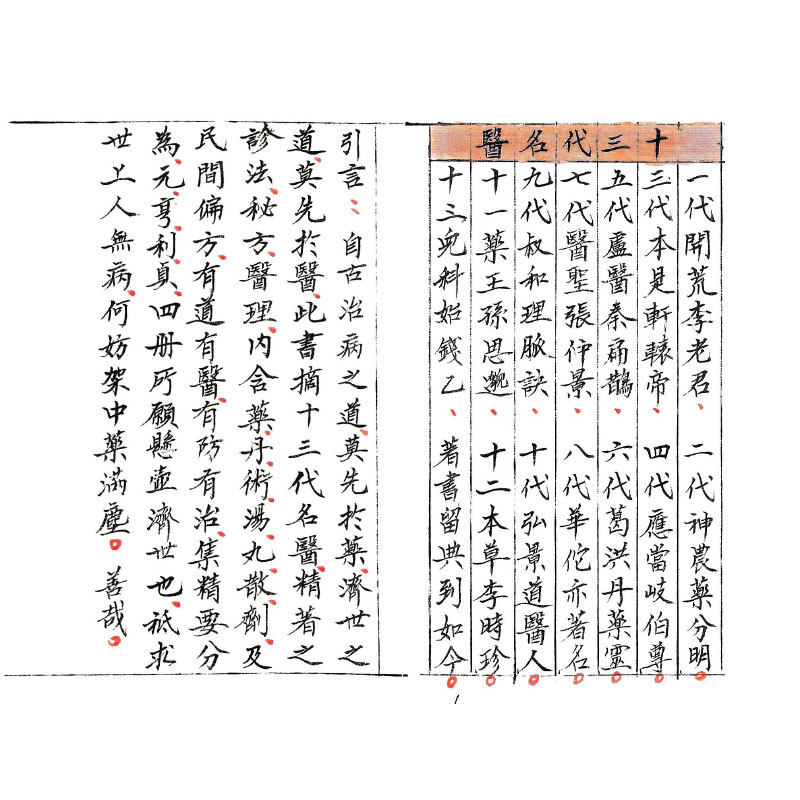 十三代名醫
一代開荒李老君、二代神農藥分明。
三代本是軒轅帝、四代應當岐伯尊。
五代盧醫秦扁鵲、六代葛洪丹藥靈。
七代醫聖張仲景、八代華佗亦著名。
九代叔和理脈訣、十代弘景道醫人。
十一藥王孫思邈、十二本草李時珍。
十三兒科始錢乙、著書留典到如今。
引言：自古治病之道、莫先於藥、濟世之
道、莫先於醫、此書摘十三代名醫、精著之
診法、秘方、醫理、內含藥、丹、術、湯、丸、散、劑、及
民間偏方、有道有醫、有防有治、集精要分
為、元、亨、利、貞、四册、所願懸壺濟世也、祗求
世上人無病、何妨架中藥滿塵。善哉。